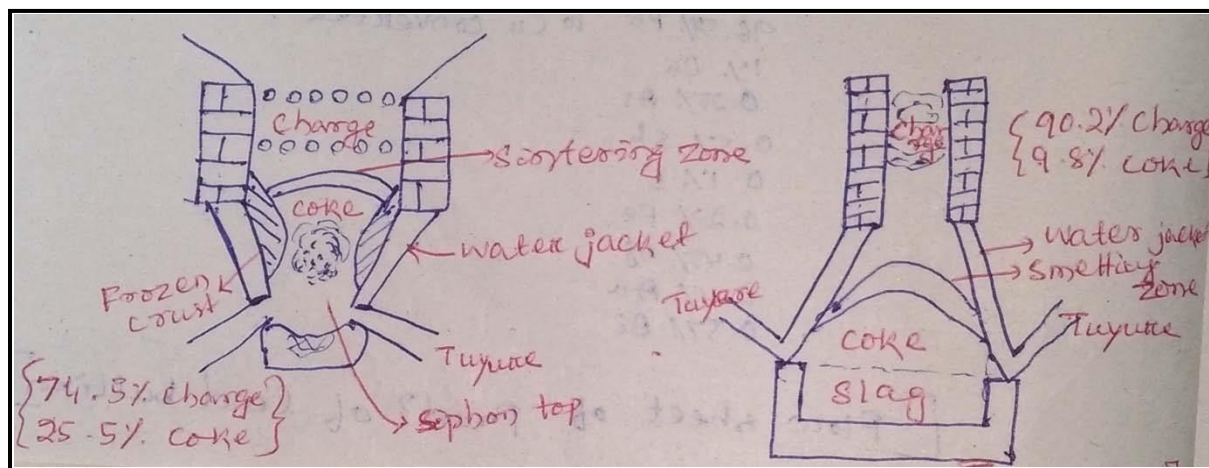 Charge
Sintering zone
coke
water jacket
Frozen
crust
Tuyure
{74.5% charge}
{25.5% coke}
Sophon top
{90.2% Charge
{9.8% coke}
Char
ge
water jacket
Smelting
zone
Tuyure
Tuyure
coke
Slag